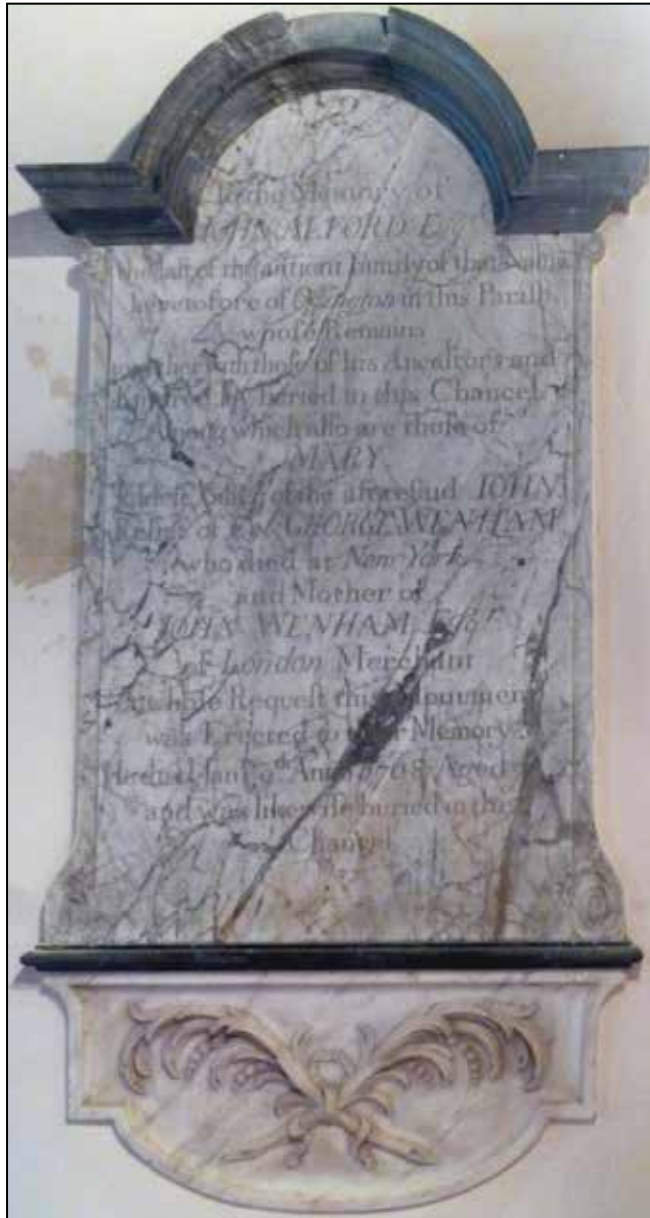 To the Memory of
JOHN ALFORD Esqr
the last of the antient Family of that Name
heretofore of Offington in this Parish
whose Remains
together with those of his Ancestors and
Kindred lie buried in this Chancel
Among which also are those of
MARY
Eldest of the aforesaid JOHN
Relict of GEORGE WENHAM
who died at New York
and Mother of
JOHN WENHAM Esqr
of London Merchant
at whose Request this Monument
was Erected to their Memory
He died Janr 9th Anno 1768 Aged
and was likewise buried in this
Chancel